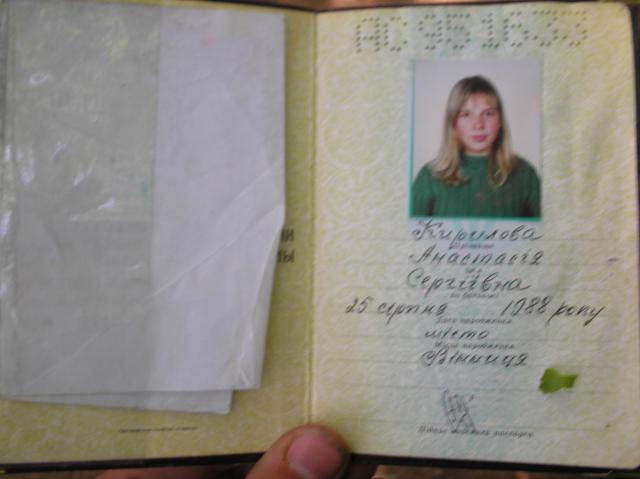 Кирилова
Прізвище
Анастасія
Ім'я
Сергіївна
по батькові
25 серпня 1988 року
Дата народження
місто
Місце народження
Вінниця
Підпис власника паспорта